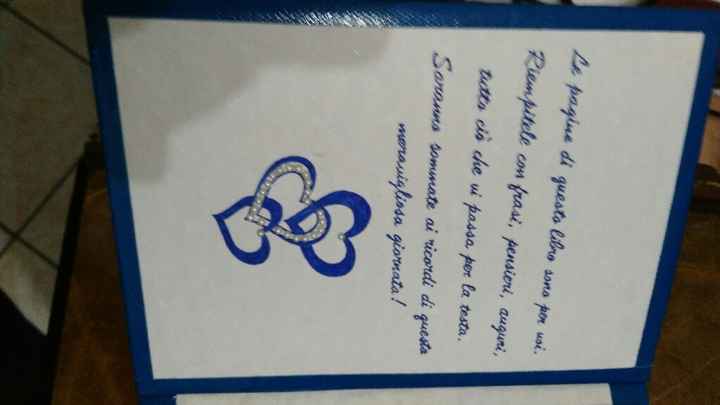 Le pagine di questo libro sono per voi.
Riempitele con frasi, pensieri, auguri,
tutto ciò che vi passa per la testa.
Saranno sommate ai ricordi di questa
meravigliosa giornata!